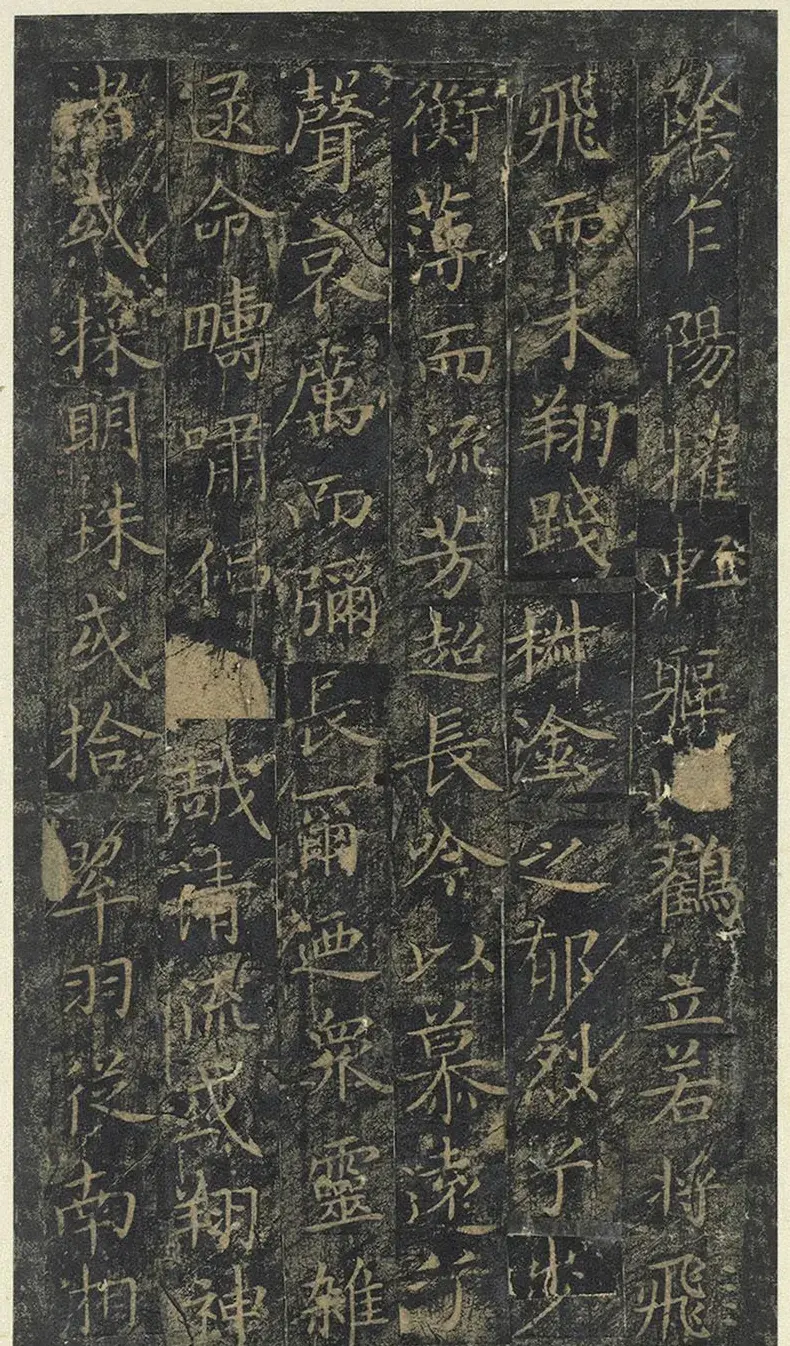 陰乍陽擢輕軀鶴立若將飛
飛而未翔踐椒塗之郁烈予步
衡薄而流芳超長吟以慕遠兮
聲哀厲而彌長爾迺衆靈雜
逯命疇嘯侶戲清流或翔神
渚或採明珠或拾翠羽從南湘